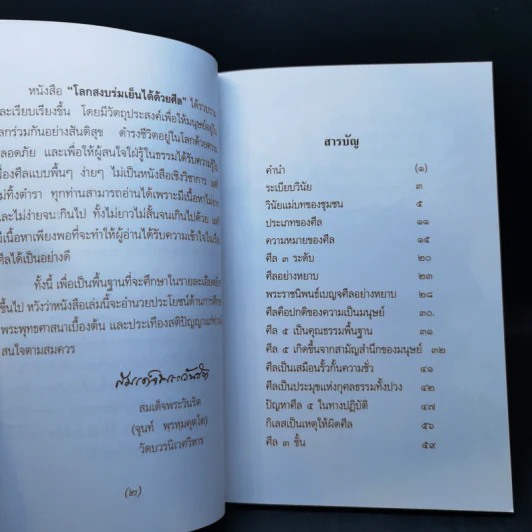 หนังสือ "โลกสงบร่มเย็นได้ด้วยศีล" ได้รวบรวม
และเรียบเรียงขึ้น โดยมีวัตถุประสงค์เพื่อให้มนุษย์อยู่ใน
โลกร่วมกันอย่างสันติสุข ดำรงชีวิตอยู่ในโลกด้วยความ
ปลอดภัย และเพื่อให้ผู้สนใจใฝ่รู้ในธรรมได้รับความรู้ใน
เรื่องศีลแบบพื้นๆ ง่ายๆ ไม่เป็นหนังสือเชิงวิชาการ แต่
ไม่ทิ้งตำรา ทุกท่านสามารถอ่านได้เพราะมีเนื้อหาไม่ยาก
และไม่ง่ายจนเกินไป ทั้งไม่ยาวไม่สั้นจนเกินไปด้วย แต่
มีเนื้อหาเพียงพอที่จะทำให้ผู้อ่านได้รับความเข้าใจในเรื่อง
ศีลได้เป็นอย่างดี
ทั้งนี้ เพื่อเป็นพื้นฐานที่จะศึกษาในรายละเอียดยิ่ง
ขึ้นไป หวังว่าหนังสือเล่มนี้จะอำนวยประโยชน์ด้านการศึกษา
พระพุทธศาสนาเบื้องต้น และประเทืองสติปัญญาแก่ท่าน
สนใจตามสมควร
สมเด็จพระวันรัต
สมเด็จพระวันรัต
(จุนท์ พฺรหฺมคุตฺโต)
วัดบวรนิเวศวิหาร
(๒)
สารบัญ
คำนำ (๑)
ระเบียบวินัย ๓
วินัยแม่บทของชุมชน ๕
ประเภทของศีล ๑๑
ความหมายของศีล ๑๕
ศีล ๓ ระดับ ๒๐
ศีลอย่างหยาบ ๒๓
พระราชนิพนธ์เบญจศีลอย่างหยาบ ๒๘
ศีลคือปกติของความเป็นมนุษย์ ๓๐.
ศีล ๕ เป็นคุณธรรมพื้นฐาน ๓๑
ศีล ๕ เกิดขึ้นจากสามัญสำนึกของมนุษย์ ๓๒
ศีลเป็นเสมือนรั้วกั้นความชั่ว ๔๑
ศีลเป็นประมุขแห่งกุศลธรรมทั้งปวง ๔๒
ปัญหาศีล ๕ ในทางปฏิบัติ ๔๗
กิเลสเป็นเหตุให้ผิดศีล ๕๖
ศีล ๓ ชั้น ๕๙